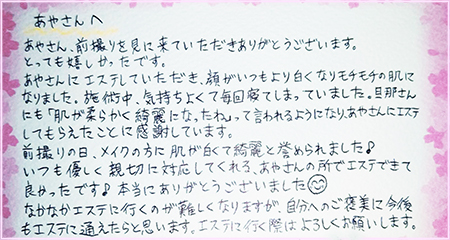 あやさんへ
あやさん、前撮りを見に来ていただきありがとうございます。
とっても嬉しかったです。
あやさんにエステしていただき、顔がいつもより白くなりモチモチの肌に
なりました。施術中、気持ちよくて毎回寝てしまっていました。旦那さん
にも「肌が柔らかく綺麗になったね」って言われるようになり、あやさんにエステ
してもらえたことに感謝しています。
前撮りの日、メイクの方に肌が白くて綺麗と誉められました♪
いつも優しく親切に対応してくれる、あやさんの所でエステできて
良かったです♪本当にありがとうございました
なかなかエステに行くのが難しくなりますが、自分へのご褒美に今後
もエステに通えたらと思います。エステに行く際はよろしくお願いします。